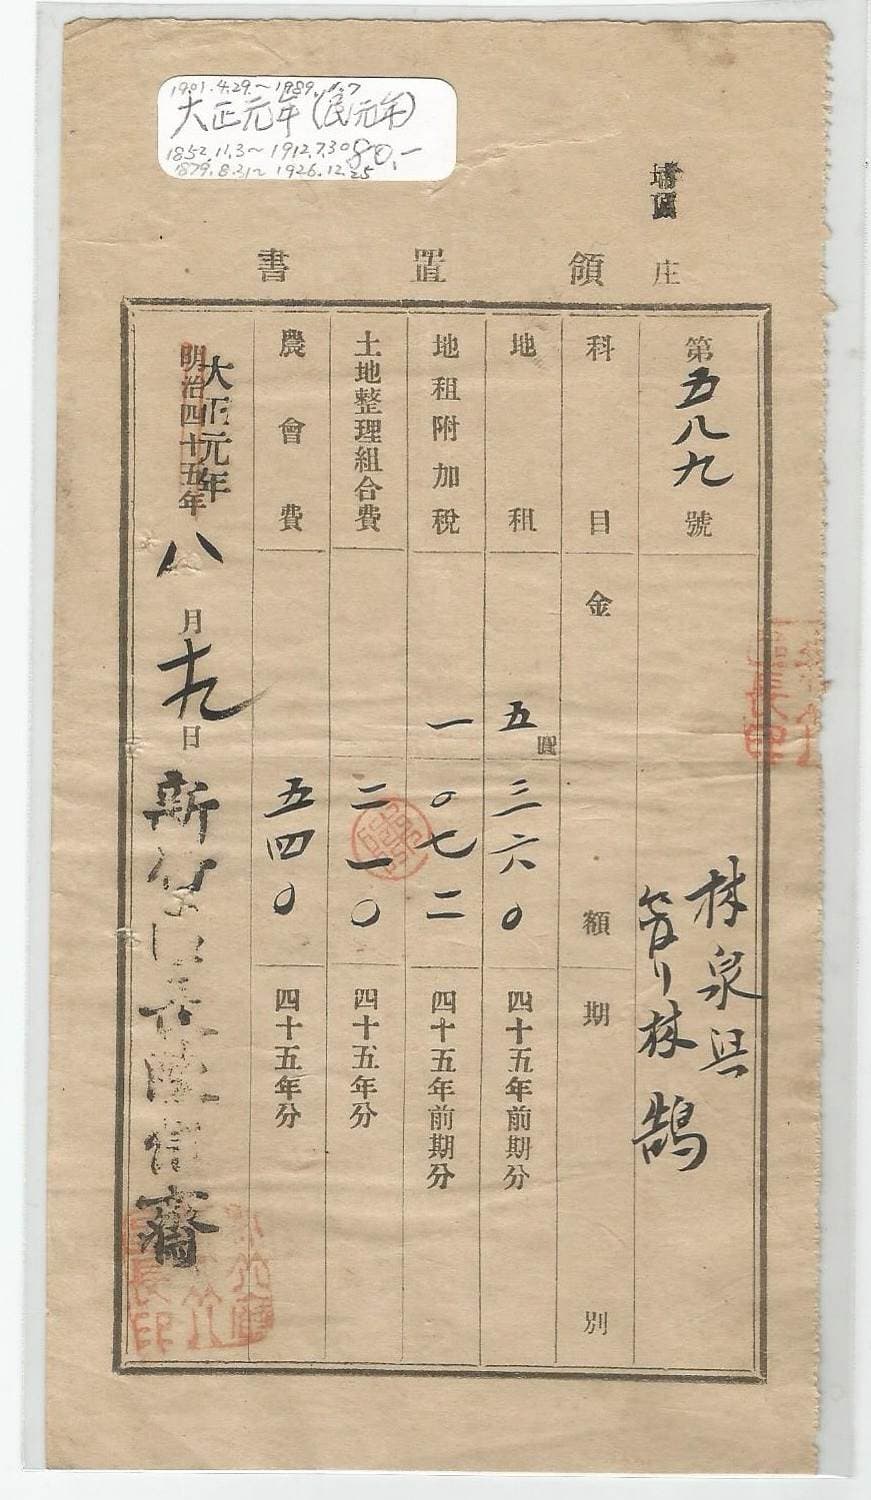 1901.4.29.~1989.1.7
大正元年(民元年)
1852.11.3~1912.7.30 80.-
1879.8.31~1926.12.25
庄
領置書
第五八九號
林泉興
管リ林鵠
科目 金額 期別
地租 五圓三六〇 四十五年前期分
地租附加稅 一〇七二 四十五年前期分
土地整理組合費 二一〇 四十五年分
農會費 五四〇 四十五年分
大正元年
明治四十五年八月十九日
新竹區長